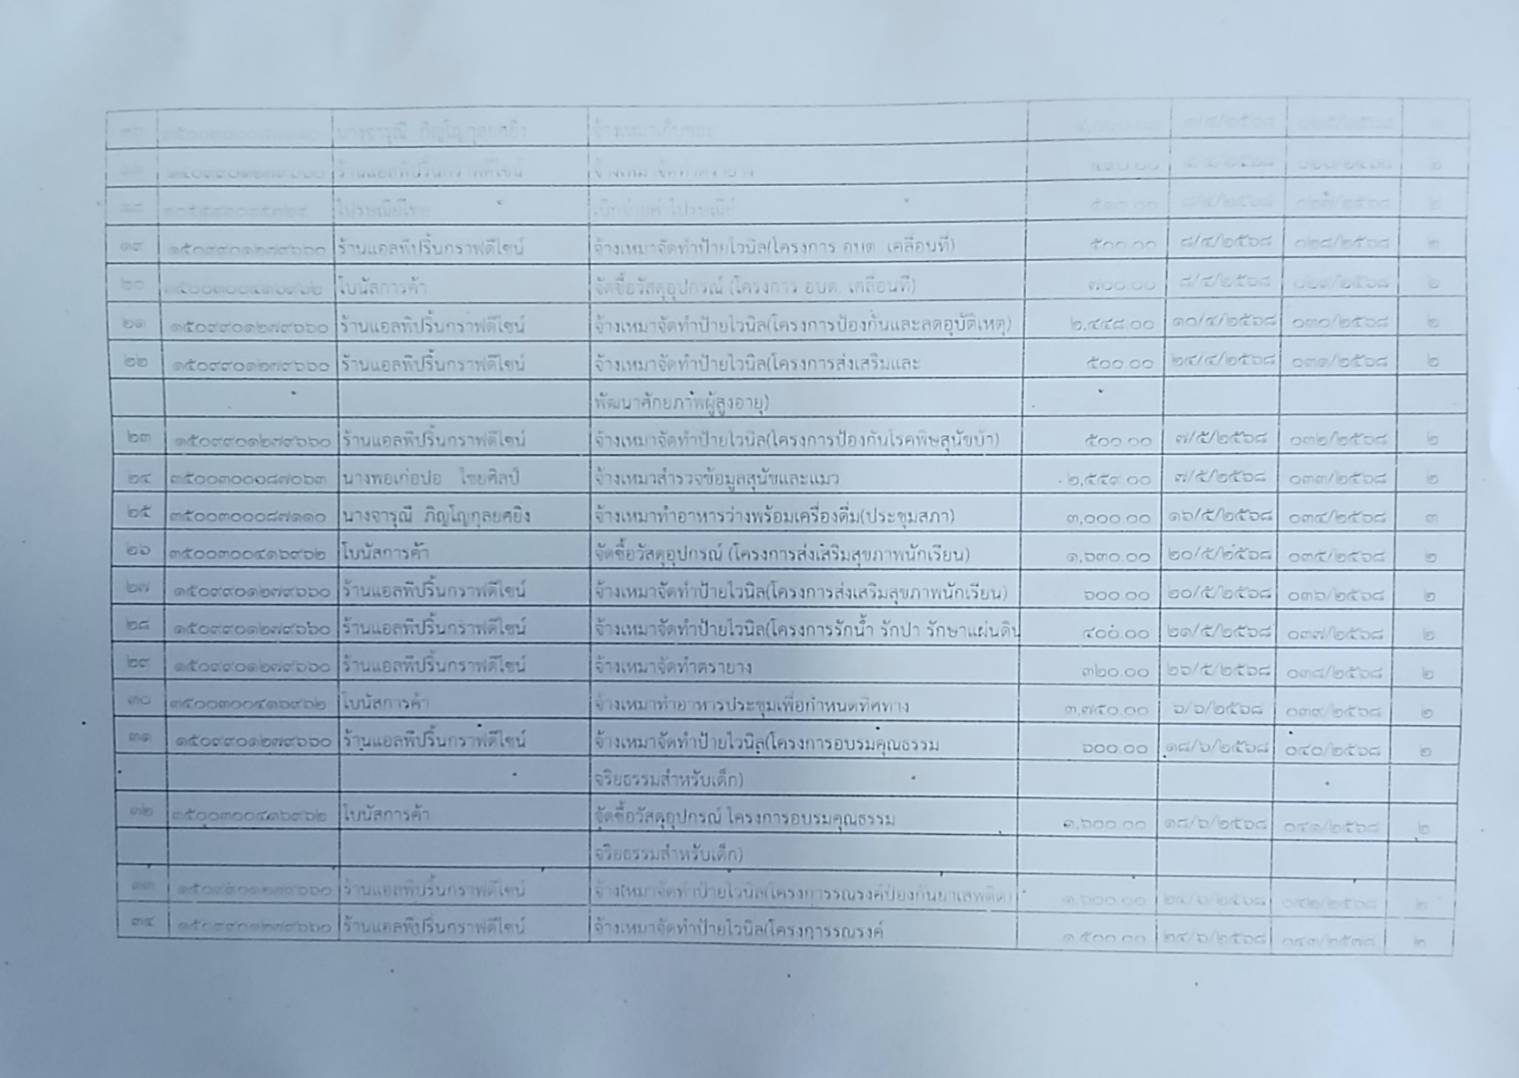 นางจารุณี ภิญโญกุลยศยิง จ้างเหมาเก็บขยะ
ร้านแอลพีปริ้นกราฟดีไซน์ จ้างเหมาจัดทำตรายาง
๑๘ ไปรษณีย์ไทย
๑๙ ๑๕๐๙๙๐๑๒๗๙๖๖๐ ร้านแอลพีปริ้นกราฟดีไซน์ จ้างเหมาจัดทำป้ายไวนิล(โครงการ อบต. เคลื่อนที่) ๕๐๐.๐๐ ๘/๔/๒๕๖๘ ๐๒๘/๒๕๖๘ ๒
๒๐ ๓๕๐๐๓๐๐๔๑๖๙๖๒ โบนัสการค้า จัดซื้อวัสดุอุปกรณ์ (โครงการ อบต. เคลื่อนที่) ๗๐๐.๐๐ ๘/๔/๒๕๖๘ ๐๒๙/๒๕๖๘ ๒
๒๑ ๑๕๐๙๙๐๑๒๗๙๖๖๐ ร้านแอลพีปริ้นกราฟดีไซน์ จ้างเหมาจัดทำป้ายไวนิล(โครงการป้องกันและลดอุบัติเหตุ) ๒,๔๔๘.๐๐ ๑๐/๔/๒๕๖๘ ๐๓๐/๒๕๖๘ ๒
๒๒ ๑๕๐๙๙๐๑๒๗๙๖๖๐ ร้านแอลพีปริ้นกราฟดีไซน์ จ้างเหมาจัดทำป้ายไวนิล(โครงการส่งเสริมและ ๕๐๐.๐๐ ๒๔/๔/๒๕๖๘ ๐๓๑/๒๕๖๘ ๒
พัฒนาศักยภาพผู้สูงอายุ)
๒๓ ๑๕๐๙๙๐๑๒๗๙๖๖๐ ร้านแอลพีปริ้นกราฟดีไซน์ จ้างเหมาจัดทำป้ายไวนิล(โครงการป้องกันโรคพิษสุนัขบ้า) ๕๐๐.๐๐ ๗/๕/๒๕๖๘ ๐๓๒/๒๕๖๘ ๒
๒๔ ๓๕๐๐๓๐๐๐๘๗๐๖๓ นางพอเก่อปอ ไชยศิลป์ จ้างเหมาสำรวจข้อมูลสุนัขและแมว ๒,๕๕๙.๐๐ ๗/๕/๒๕๖๘ ๐๓๓/๒๕๖๘ ๒
๒๕ ๓๕๐๐๓๐๐๐๘๗๑๑๐ นางจารุณี ภิญโญกุลยศยิง จ้างเหมาทำอาหารว่างพร้อมเครื่องดื่ม(ประชุมสภา) ๓,๐๐๐.๐๐ ๑๖/๕/๒๕๖๘ ๐๓๔/๒๕๖๘ ๓
๒๖ ๓๕๐๐๓๐๐๔๑๖๙๖๒ โบนัสการค้า จัดซื้อวัสดุอุปกรณ์ (โครงการส่งเสริมสุขภาพนักเรียน) ๑,๖๓๐.๐๐ ๒๐/๕/๒๕๖๘ ๐๓๕/๒๕๖๘ ๒
๒๗ ๑๕๐๙๙๐๑๒๗๙๖๖๐ ร้านแอลพีปริ้นกราฟดีไซน์ จ้างเหมาจัดทำป้ายไวนิล(โครงการส่งเสริมสุขภาพนักเรียน) ๖๐๐.๐๐ ๒๐/๕/๒๕๖๘ ๐๓๖/๒๕๖๘ ๒
๒๘ ๑๕๐๙๙๐๑๒๗๙๖๖๐ ร้านแอลพีปริ้นกราฟดีไซน์ จ้างเหมาจัดทำป้ายไวนิล(โครงการรักน้ำ รักปา รักษาแผ่นดิน ๔๐๐.๐๐ ๒๑/๕/๒๕๖๘ ๐๓๗/๒๕๖๘ ๒
๒๙ ๑๕๐๙๙๐๑๒๗๙๖๖๐ ร้านแอลพีปริ้นกราฟดีไซน์ จ้างเหมาจัดทำตรายาง ๓๒๐.๐๐ ๒๖/๕/๒๕๖๘ ๐๓๘/๒๕๖๘ ๒
๓๐ ๓๕๐๐๓๐๐๔๑๖๙๖๒ โบนัสการค้า จ้างเหมาทำอาหารประชุมเพื่อกำหนดทิศทาง ๓,๗๕๐.๐๐ ๖/๖/๒๕๖๘ ๐๓๙/๒๕๖๘ ๒
๓๑ ๑๕๐๙๙๐๑๒๗๙๖๖๐ ร้านแอลพีปริ้นกราฟดีไซน์ จ้างเหมาจัดทำป้ายไวนิล(โครงการอบรมคุณธรรม ๖๐๐.๐๐ ๑๘/๖/๒๕๖๘ ๐๔๐/๒๕๖๘ ๒
จริยธรรมสำหรับเด็ก)
๓๒ ๓๕๐๐๓๐๐๔๑๖๙๖๒ โบนัสการค้า จัดซื้อวัสดุอุปกรณ์ โครงการอบรมคุณธรรม ๑,๖๐๐.๐๐ ๑๘/๖/๒๕๖๘ ๐๔๑/๒๕๖๘ ๒
จริยธรรมสำหรับเด็ก)
๓๓ ๑๕๐๙๙๐๑๒๗๙๖๖๐ ร้านแอลพีปริ้นกราฟดีไซน์ จ้างเหมาจัดทำป้ายไวนิล(โครงการรณรงค์ป้องกันยาเสพติด) ๑,๖๐๐.๐๐ ๒๔/๖/๒๕๖๘ ๐๔๒/๒๕๖๘ ๒
๓๔ ๑๕๐๙๙๐๑๒๗๙๖๖๐ ร้านแอลพีปริ้นกราฟดีไซน์ จ้างเหมาจัดทำป้ายไวนิล(โครงการรณรงค์ ๑,๕๐๐.๐๐ ๒๔/๖/๒๕๖๘ ๐๔๓/๒๕๗๘ ๒